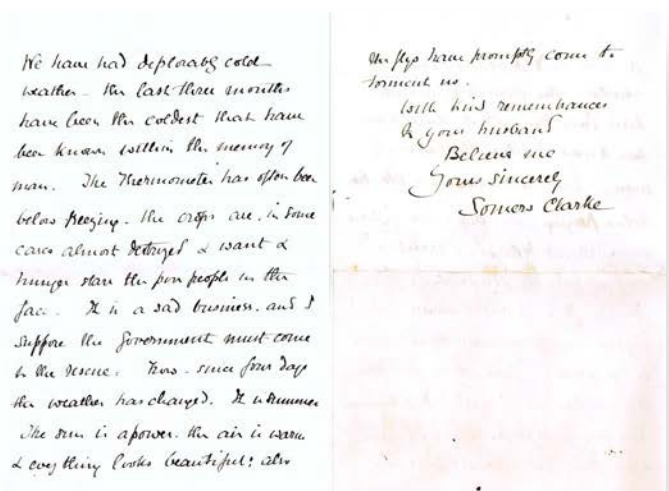 We have had deplorably cold
weather - the last three months
have been the coldest that have
been known within the memory of
man. The Thermometer has often been
below freezing. the crops are, in some
cases almost destroyed & want &
hunger stare the poor people in the
face. It is a sad business. and I
suppose the Government must come
to the rescue. Now - since four days
the weather has changed. It is summer
The sun is a power. the air is warm
& everything looks beautiful: also
the flys have promptly come to
torment us.
With kind remembrances
to your husband
Believe me
Yours sincerely
Somers Clarke